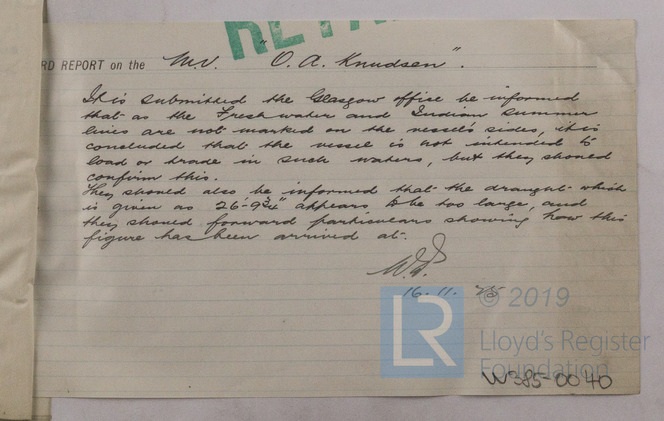 RD REPORT on the M.V. "O. A. Knudsen".
It is submitted the Glasgow office be informed
that as the Freshwater and Indian Summer
lines are not marked on the vessel's sides, it is
concluded that the vessel is not intended to
load or trade in such waters, but they should
confirm this.
They should also be informed that the draught which
is given as 26'-9¾" appears to be too large, and
they should forward particulars showing how this
figure has been arrived at.
16.11.25
© 2019
LR
Lloyd's Register
Foundation
W385-0040